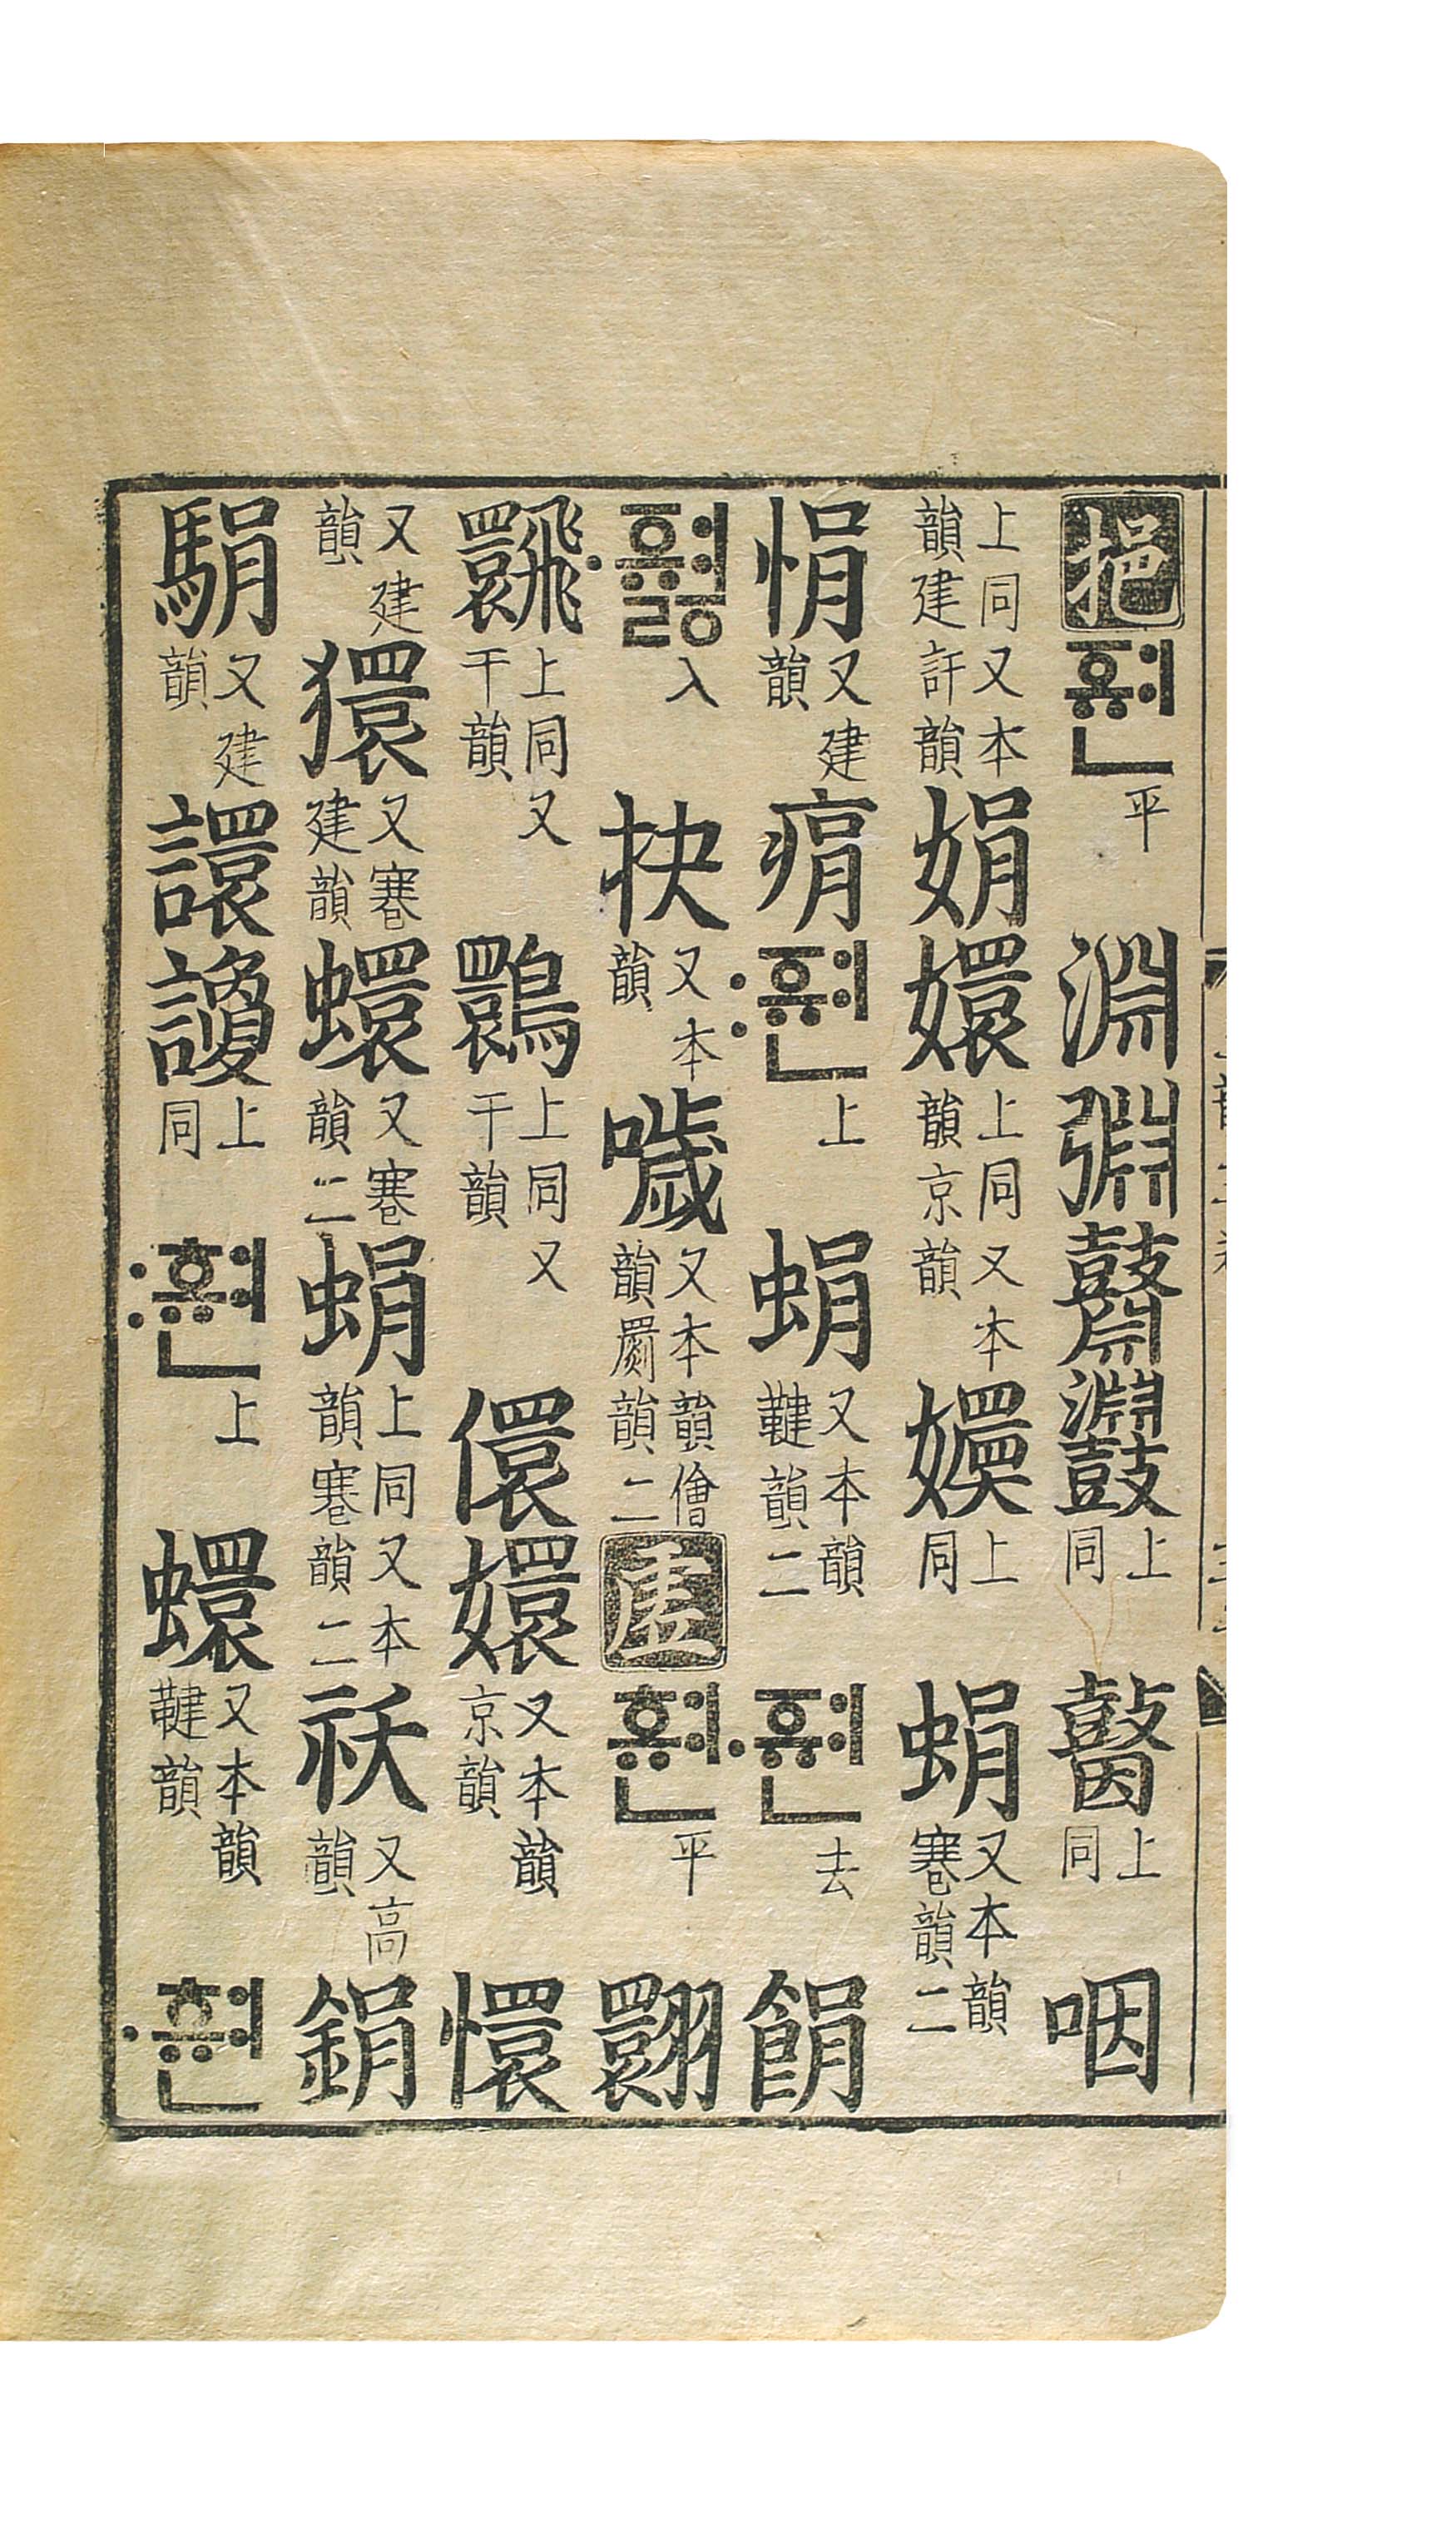 挹 ᅙᆑᆫ 平 淵 鼘 鼝 上同 上同 咽
上同又本韻建訐韻 娟 嬛 上同又本韻京韻 上同 蜎 又本韻寋韻二
悁 又建韻 ᅙᆑᆫ〯 上 蜎 又本韻鞬韻二 ᅙᆑᆫ〮 去 䬼
ᅙᆑᇙ〮 入 抉 又本韻 噦 又本韻儈韻罽韻二 虛 ᄒᆑᆫ 平 翾
上同又干韻 上同又干韻 儇 嬛 又本韻京韻 懁
又建韻 獧 又寋建韻 蠉 又寋韻二 蜎 上同又本韻寋韻二 祆 又高韻 鋗
駽 又建韻 譞 上同 ᄒᆑᆫ〯 上 蠉 又本韻鞬韻 ᄒᆑᆫ〮